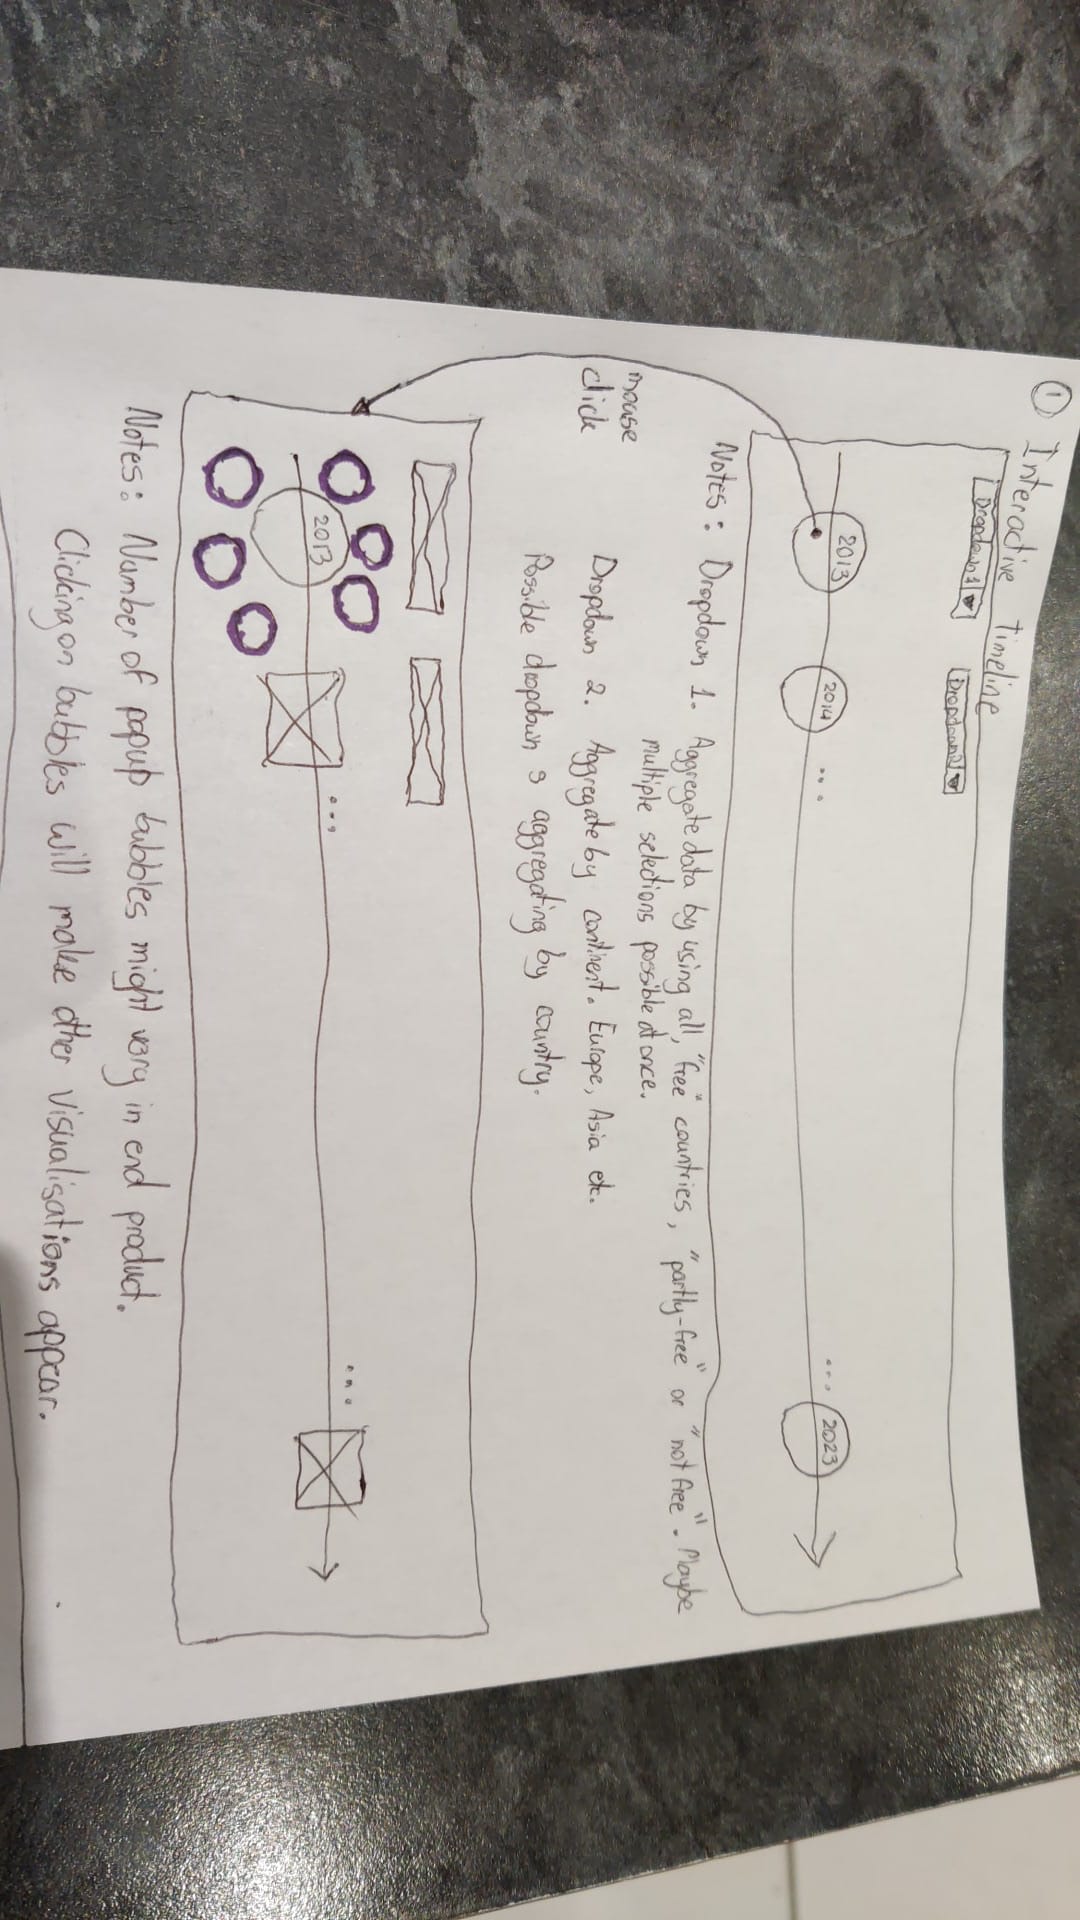 ① Interactive timeline
Dropdown 1 ▼
Dropdown 2 ▼
2013
2014
...
...
2023
Notes: Dropdown 1. Aggregate data by using all, "free" countries, "partly-free" or "not free". Maybe
multiple selections possible at once.
mouse
click
Dropdown 2. Aggregate by continent. Europe, Asia etc.
Possible dropdown 3 aggregating by country.
2013
...
...
Notes: Number of popup bubbles might vary in end product.
Clicking on bubbles will make other visualisations appear.